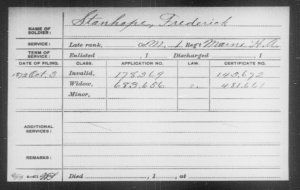 NAME OF SOLDIER: Stanhope, Frederick
SERVICE: Late rank, 1 Reg't Maine H.A.
Enlisted , 1 Discharged , 1
DATE OF FILING. CLASS. APPLICATION NO. CERTIFICATE NO.
Oct. 3 Invalid, 178.369 143.692
Widow, 683.656
Minor,
ADDITIONAL SERVICES:
REMARKS:
Died , 1 , at